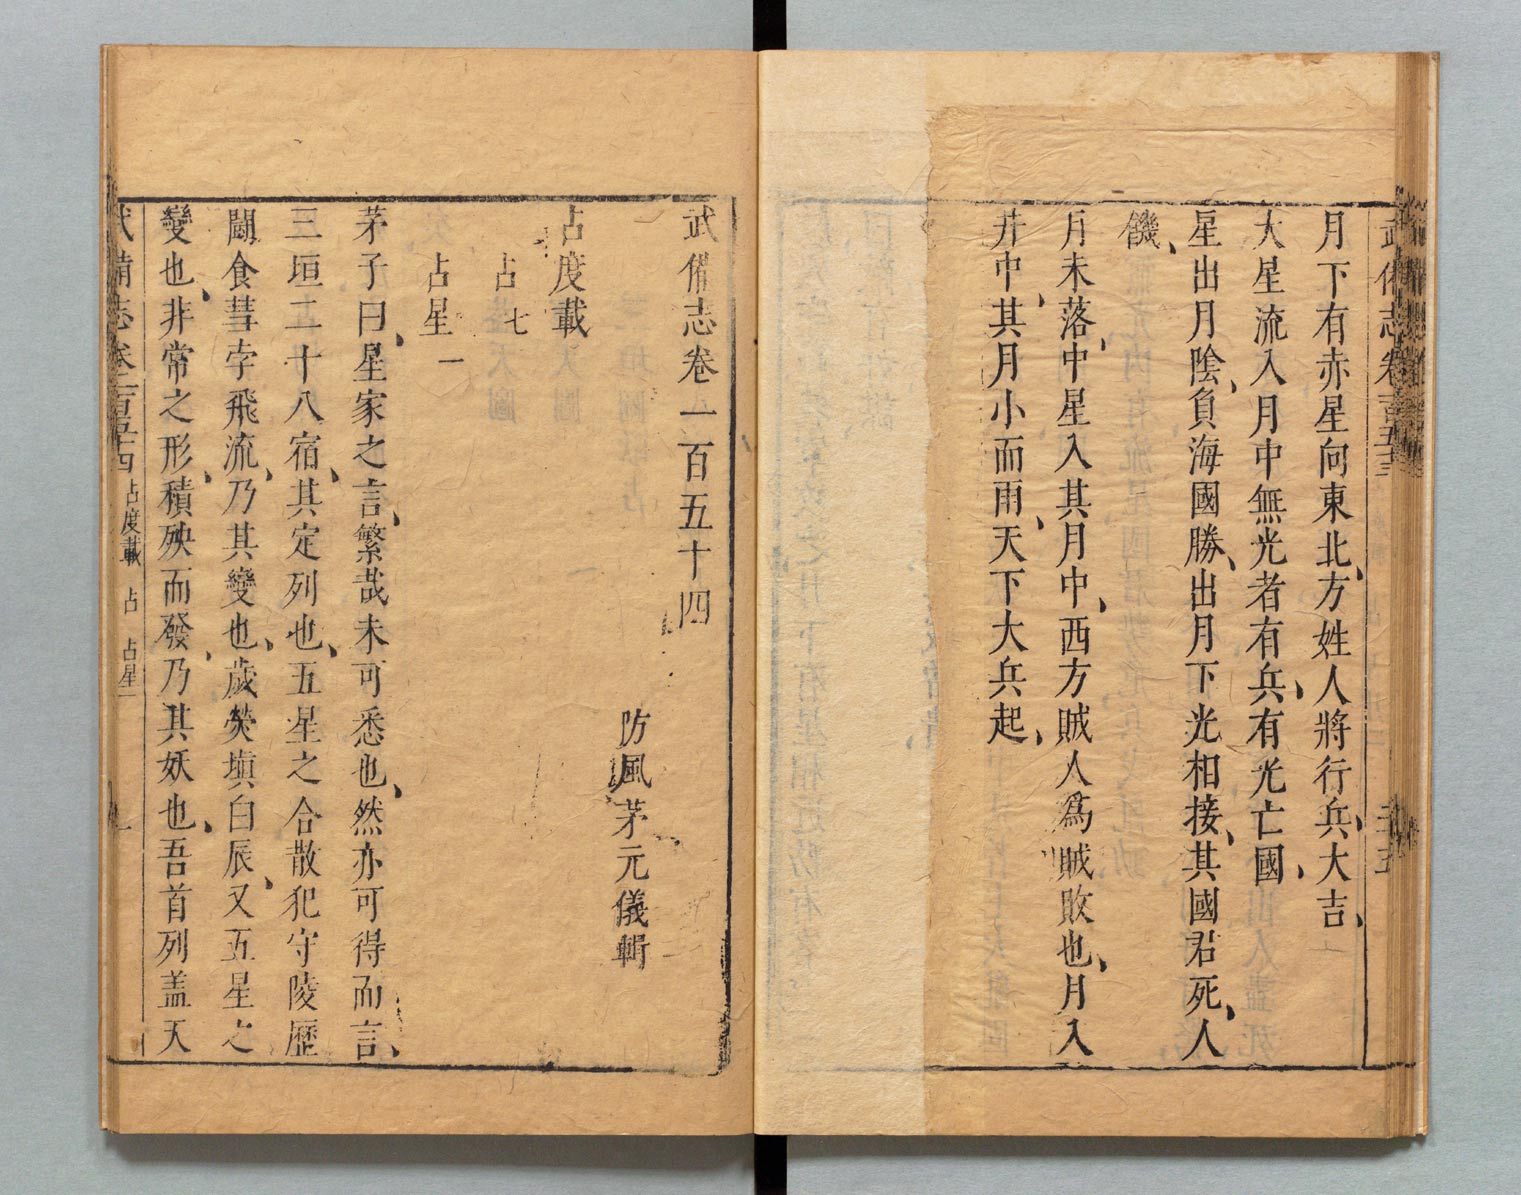 武備志卷一百五十三
月下有赤星向東北方姓人將行兵、大吉、
大星流入月中無光者有兵、有光亡國、
星出月陰、負海國勝、出月下光相接、其國君死、人
饑、
月未落、中星入其月中、西方賊人爲賊敗也、月入
井中、其月小而雨、天下大兵起、
武備志卷一百五十四
防風茅元儀輯
占度載
占七
占星一
茅子曰、星家之言、繁哉未可悉也、然亦可得而言、
三垣二十八宿、其定列也、五星之合散犯守陵歷
鬪食彗孛飛流、乃其變也、歲熒塡白辰、又五星之
變也、非常之形、積殃而發、乃其妖也、吾首列蓋天
武備志卷一百五十四 占度載 占 占星一 一